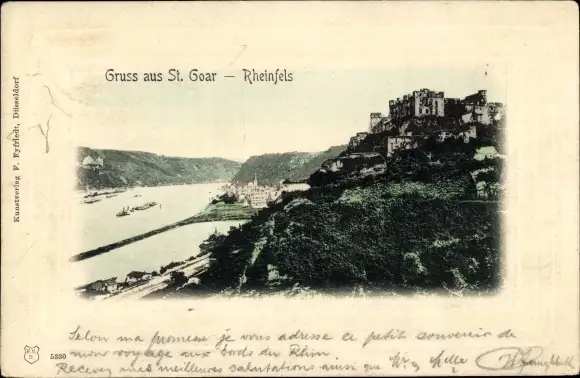 Gruss aus St. Goar — Rheinfels
Kunstverlag F. Eyfriedt, Düsseldorf
5890
Selon ma promesse je vous adresse ce petit souvenir de
mon voyage aux bords du Rhin
Recevez mes meilleures salutations ainsi que Mr & Melle